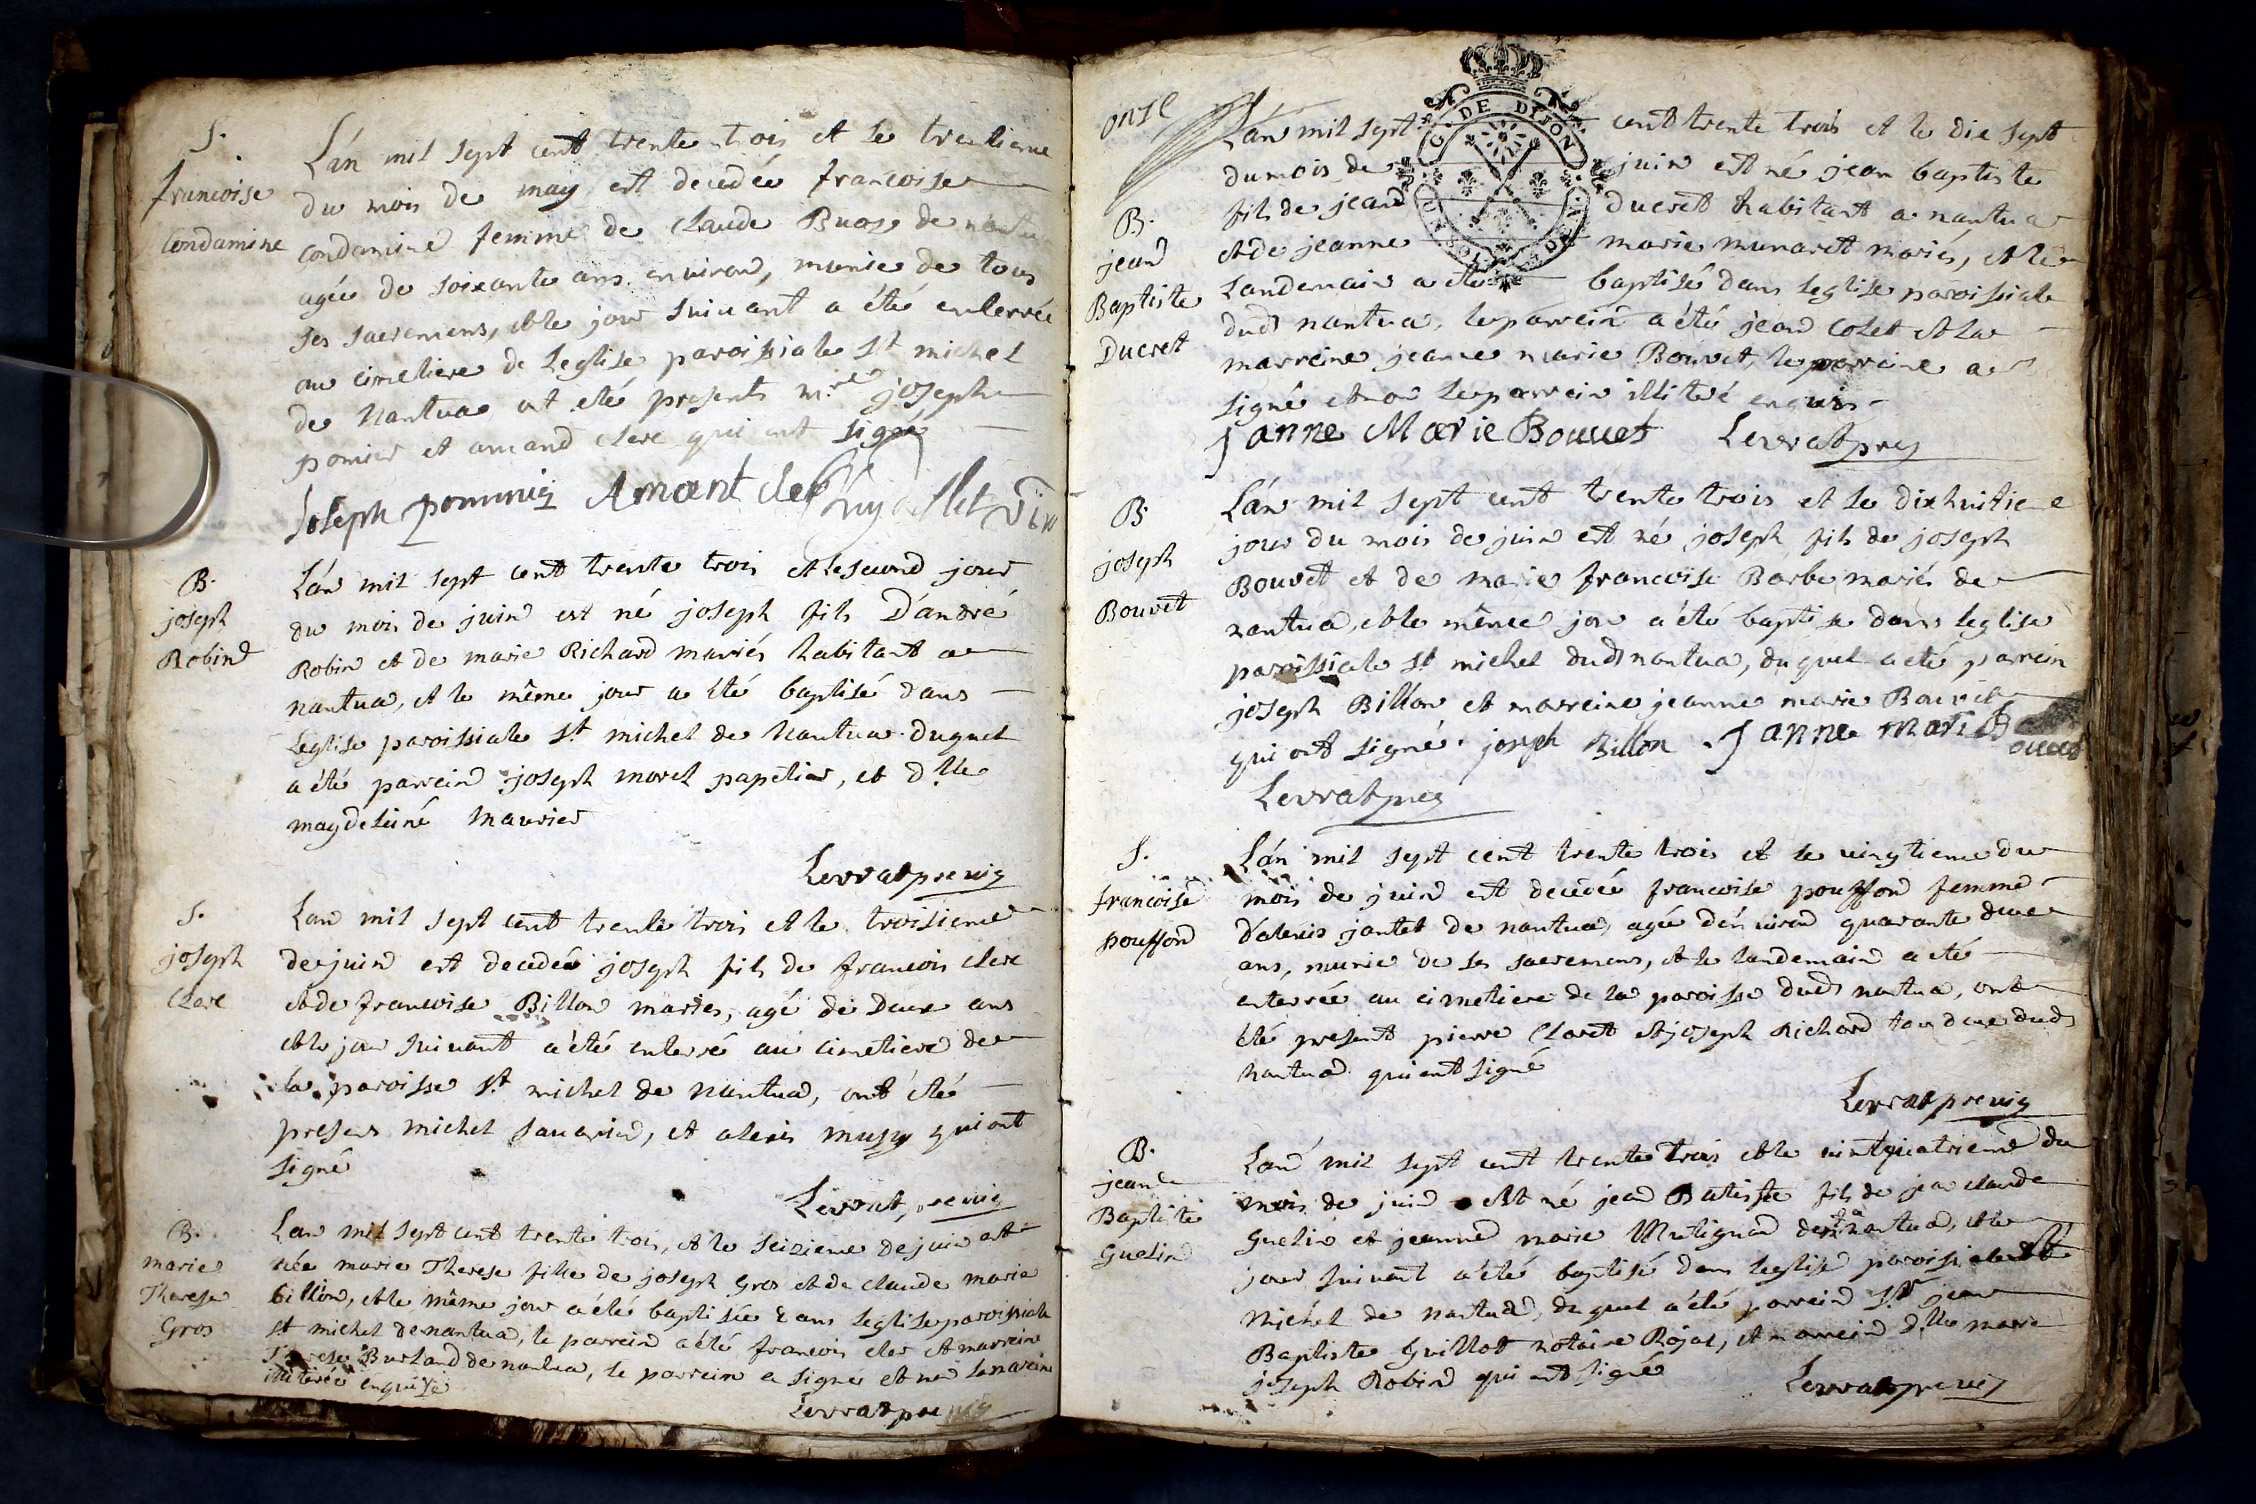 S.
francoise
Condamine
L'an mil sept cent trente trois et le trentieme
du mois de may est decedée francoise
condamine femme de Claude Buas de nantu
agée de soixante ans environ, munie de tous
ses sacremens, et le jour suivant a été enterrée
au cimetiere de leglise paroissiale st michel
de Nantua ont eté presents mre joseph
pomier et amand clerc qui ont signé
Joseph pommier Amant clerc
B.
joseph
Robin
L'an mil sept cent trente trois et le second jour
du mois de juin est né joseph fils D'andré
Robin et de marie Richard mariés habitant a
nantua, et le même jour a été baptisé dans
l'eglise paroissiale st michel de Nantua duquel
a été parrein joseph morel papetier, et dlle
magdeleine maurier
Levrat previc
S.
joseph
Clerc
L'an mil sept cent trente trois et le troisieme
de juin est decedée joseph fils de francois clerc
et de francoise Billon mariés, agé de Deux ans
et le jour suivant a été enterré au cimetiere de
la paroisse st michel de Nantua, ont été
presens michel savarin, et alexis musy qui ont
signé
Levrat previc
B.
marie
Therese
Gros
L'an mil sept cent trente trois, et le seizieme de juin est
née marie Therese fille de joseph Gros et de claude marie
billion, et le même jour a été baptisée dans l'eglise paroissiale
st michel de nantua, le parrein a été francois clerc et marreine
Therese Burland de nantua, le parrein a signé et non la mareine
illiterée enquise
Levrat previc
onze
C. DE DIJON
L'an mil sept cent trente trois et le die sept
du mois de juin est né jean baptiste
fils de jean ducret habitant a nantua
et de jeanne marie munaret mariés, et le
landemain a été baptisé dans l'eglise paroissiale
dudt nantua, le parrein a été jean colet et la
marreine jeanne marie Bouvet, la marreine a
signé et non le parrein illiteré enquis
B.
jean
Baptiste
Ducret
Janne Marie Bouuet Levrat prev
B.
joseph
Bouvet
L'an mil sept cent trente trois et le dixhuitieme
jour du mois de juin est né joseph fils de joseph
Bouvet et de marie francoise Barbe mariés de
nantua, et le même jour a été baptisé dans l'eglise
paroissiale st michel dudt nantua, duquel a eté parrein
joseph Billon et marreine jeanne marie Bouvet
qui ont signé. joseph Billon . Janne mari Bouuet
Levrat prev
S.
francoise
pouffon
L'an mil sept cent trente trois et le vingtieme du
mois de juin est decedée francoise pouffon femme
d'alexis jantet de nantua, agée d'environ quarante deux
ans, munie de ses sacremens, et le landemain a eté
enterrée au cimetiere de la paroisse dudt nantua, ont
été present pierre Claret et joseph Richard tous deux dudt
nantua qui ont signé
Levrat previc
B.
jean
Baptiste
Guelin
L'an mil sept cent trente trois et le vintquatrieme du
mois de juin est né jean Batiste fils de jean claude
Guelin et jeanne marie Mutignon de nantua, et le
jour suivant a été baptisé dans l'eglise paroissiale st
Michel de nantua, duquel a été parrein sr jean
Baptiste Guillot notaire Royal, et marrein dlle marie
joseph Robin qui ont signé
Levrat previc